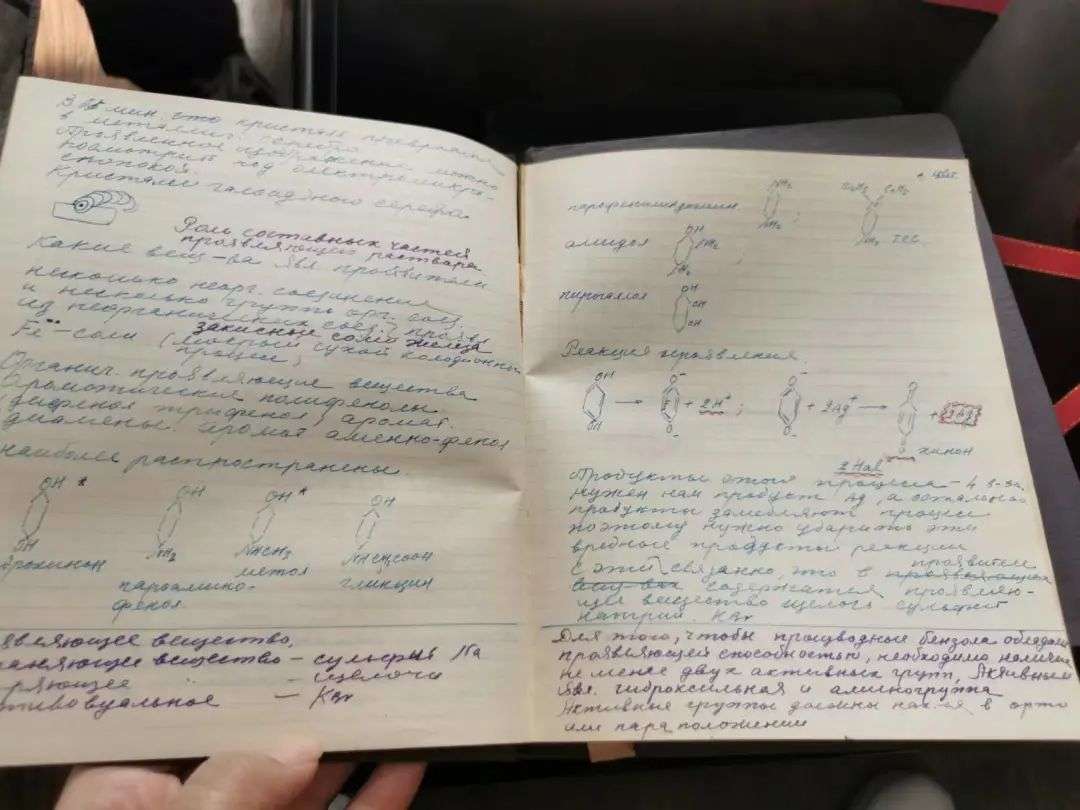 что кристалл
проявленное изображение можно
посмотреть под электромикро-
скопом.
Кристалл галоидного серебра
Роль составных частей
проявляющего раствора
Какие вещ-ва явл. проявители
несколько неорг. соединения
и несколько группы орг. соед.
из неорганических соед. прояв.
закисной соли железа
Fe - соли (мокрый сухой колодионный
процесс)
Органич. проявляющие вещества
ароматические полифенолы
(дифенол трифенол) аромат.
диамены. аромат аменно-фенол
наиболее распространены.
OH * OH OH * OH
OH NH2 NHCH3 NHCH2COOH
дрохинон метол глицин
параамино-
фенол.
являющее вещество,
няющее вещество - сульфит Na
ряющее - щелочи
тивовуальное - KBr
NH2 C2H5 C2H5
парофенилиндиамин ;
NH2 NH2
амидол OH
NH2
NH2
пирогалол OH
OH
OH
Реакция проявления.
OH O- O- O
→ + 2H+ ; + 2Ag+ → + 2Ag
OH O- O- O
хинон
2 Hal
Продукты этого процесса - 4 в-ва.
нужен нам продукт Ag, а остальные
продукты замедляют процесс
поэтому нужно убирать эти
вредные продукты реакции
проявителе
С этим связанно, что в проявляющем
содержатся проявляю-
щее вещество щелочь сульфит
натрий. KBr
Для того, чтобы производные бензола обладали
проявляющей способностью, необходимо наличие
не менее двух активных групп, Активными
явл. гидроксильная и аминогруппа
Активные группы должны нах-ся в орто
или пара положении